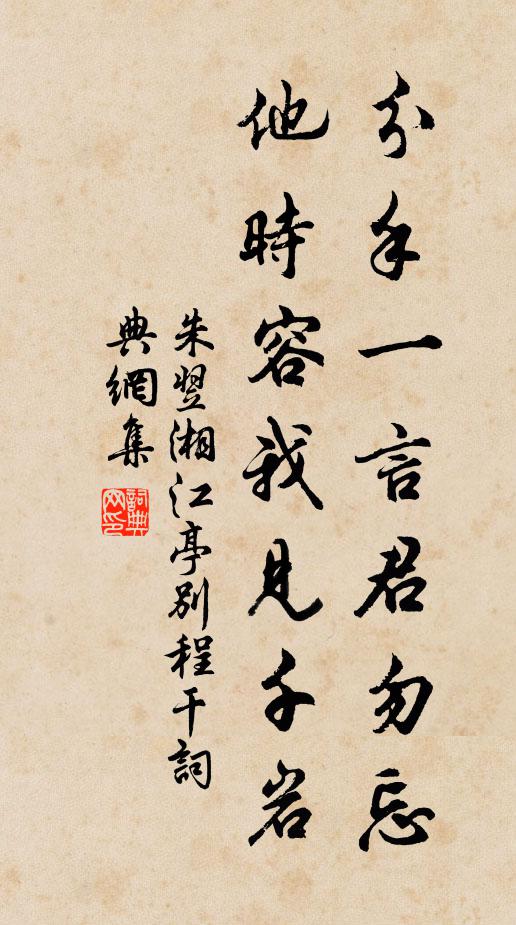 分手一言君勿忘
他時容我見千岩
朱翌湘江亭別程干詞
典網集
詞典
网印